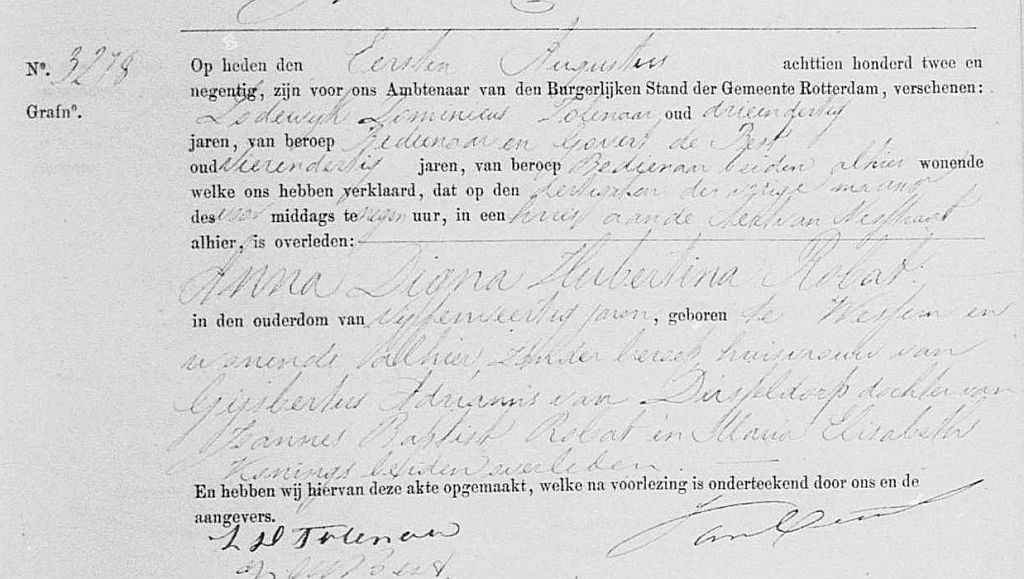 Nº. 3278
Grafnº.
Op heden den Eersten Augustus achttien honderd twee en
negentig, zijn voor ons Ambtenaar van den Burgerlijken Stand der Gemeente Rotterdam, verschenen:
Lodewijk Dominicus Tolenaar, oud drieendertig
jaren, van beroep Bedienaar en Govert de Best
oud vierendertig jaren, van beroep Bedienaar beiden alhier wonende
welke ons hebben verklaard, dat op den dertigsten der vorige maand
des voor middags te negen uur, in een huis aan de
alhier, is overleden:
Anna Digna Hubertina Robat
in den ouderdom van vijfenveertig jaren, geboren te Wessem en
wonende alhier, zonder beroep, huisvrouw van
Gijsbertus Adrianus van Dusseldorp dochter van
Joannes Baptist Robat en Maria Elisabeth
Konings beiden overleden.
En hebben wij hiervan deze akte opgemaakt, welke na voorlezing is onderteekend door ons en de
aangevers.
L D Tolenaar